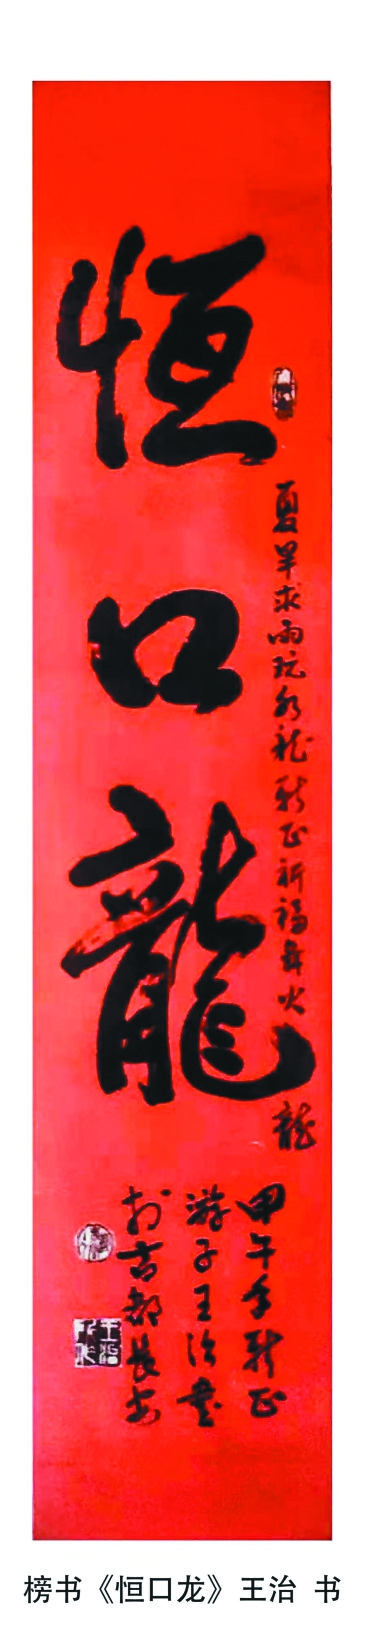 恒口龍
夏旱求雨玩水龍新正祈福舞火龍
甲午年新正
游子王治書
於古都長安
榜书《恒口龙》王治 书